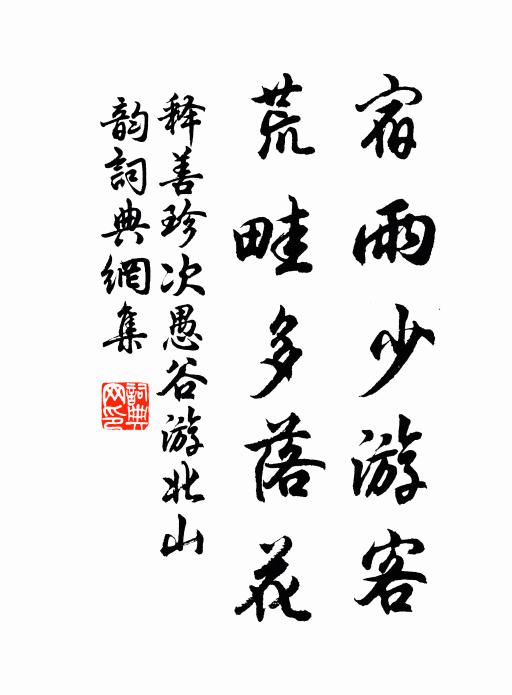 宿雨少游客
荒畦多落花
释善珍次愚谷游北山
韵詞典網集
詞典网印